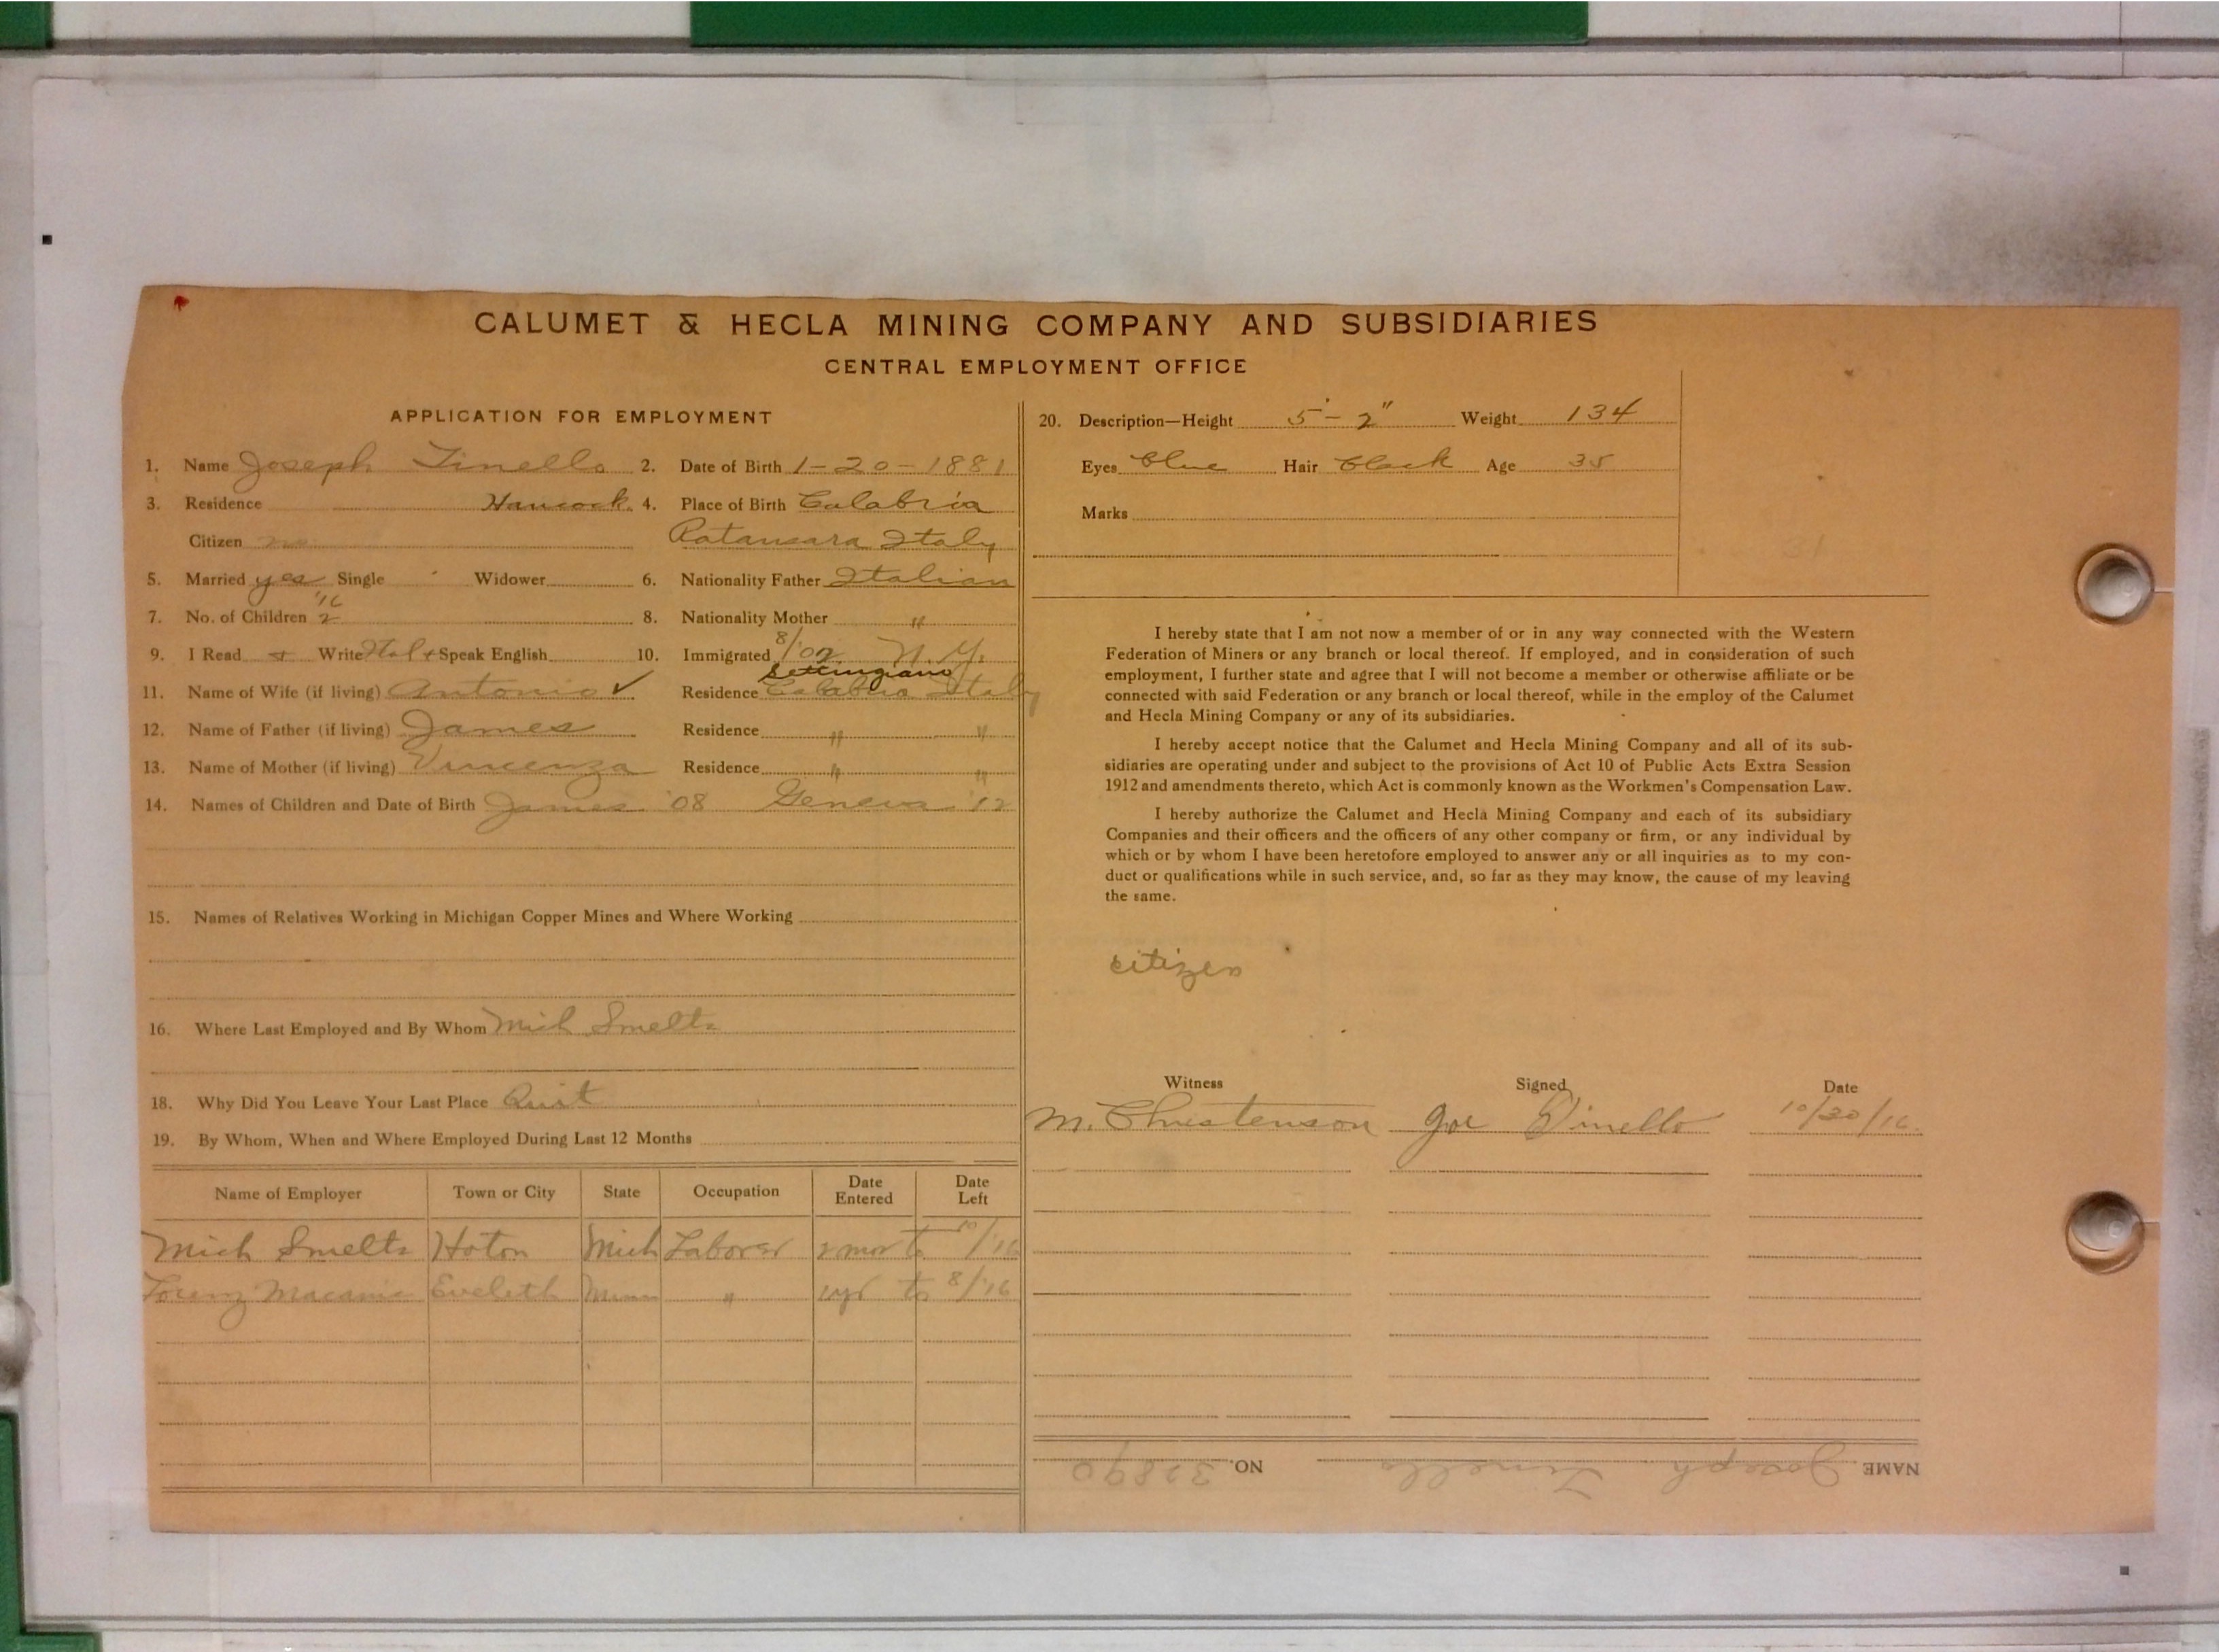 CALUMET & HECLA MINING COMPANY AND SUBSIDIARIES
CENTRAL EMPLOYMENT OFFICE
APPLICATION FOR EMPLOYMENT
1. Name Joseph Tinello 2. Date of Birth 1-20-1881
3. Residence Hancock 4. Place of Birth Calabria
Citizen no Italy
5. Married yes Single Widower 6. Nationality Father Italian
'16
7. No. of Children 2 8. Nationality Mother "
9. I Read + Write Ital + Speak English 10. Immigrated 8/'02 N.Y.
Settingiano
11. Name of Wife (if living) Antonia ✓ Residence Calabria Italy
12. Name of Father (if living) James Residence " "
13. Name of Mother (if living) Vincenza Residence " "
14. Names of Children and Date of Birth James '08 Geneva '12
15. Names of Relatives Working in Michigan Copper Mines and Where Working
16. Where Last Employed and By Whom Mich Smelts
18. Why Did You Leave Your Last Place Quit
19. By Whom, When and Where Employed During Last 12 Months
Name of Employer Town or City State Occupation Date Entered Date Left
Mich Smelts Hoton Mich Laborer 2 mos to 10/'16
Eveleth Minn " 1 yr to 8/'16
20. Description—Height 5'-2" Weight 134
Eyes blue Hair black Age 35
Marks
31
I hereby state that I am not now a member of or in any way connected with the Western
Federation of Miners or any branch or local thereof. If employed, and in consideration of such
employment, I further state and agree that I will not become a member or otherwise affiliate or be
connected with said Federation or any branch or local thereof, while in the employ of the Calumet
and Hecla Mining Company or any of its subsidiaries.
I hereby accept notice that the Calumet and Hecla Mining Company and all of its sub-
sidiaries are operating under and subject to the provisions of Act 10 of Public Acts Extra Session
1912 and amendments thereto, which Act is commonly known as the Workmen's Compensation Law.
I hereby authorize the Calumet and Hecla Mining Company and each of its subsidiary
Companies and their officers and the officers of any other company or firm, or any individual by
which or by whom I have been heretofore employed to answer any or all inquiries as to my con-
duct or qualifications while in such service, and, so far as they may know, the cause of my leaving
the same.
citizen
Witness Signed Date
M. Christenson Joe Dinello 10/30/16
NAME Joseph Tinello NO. 32890